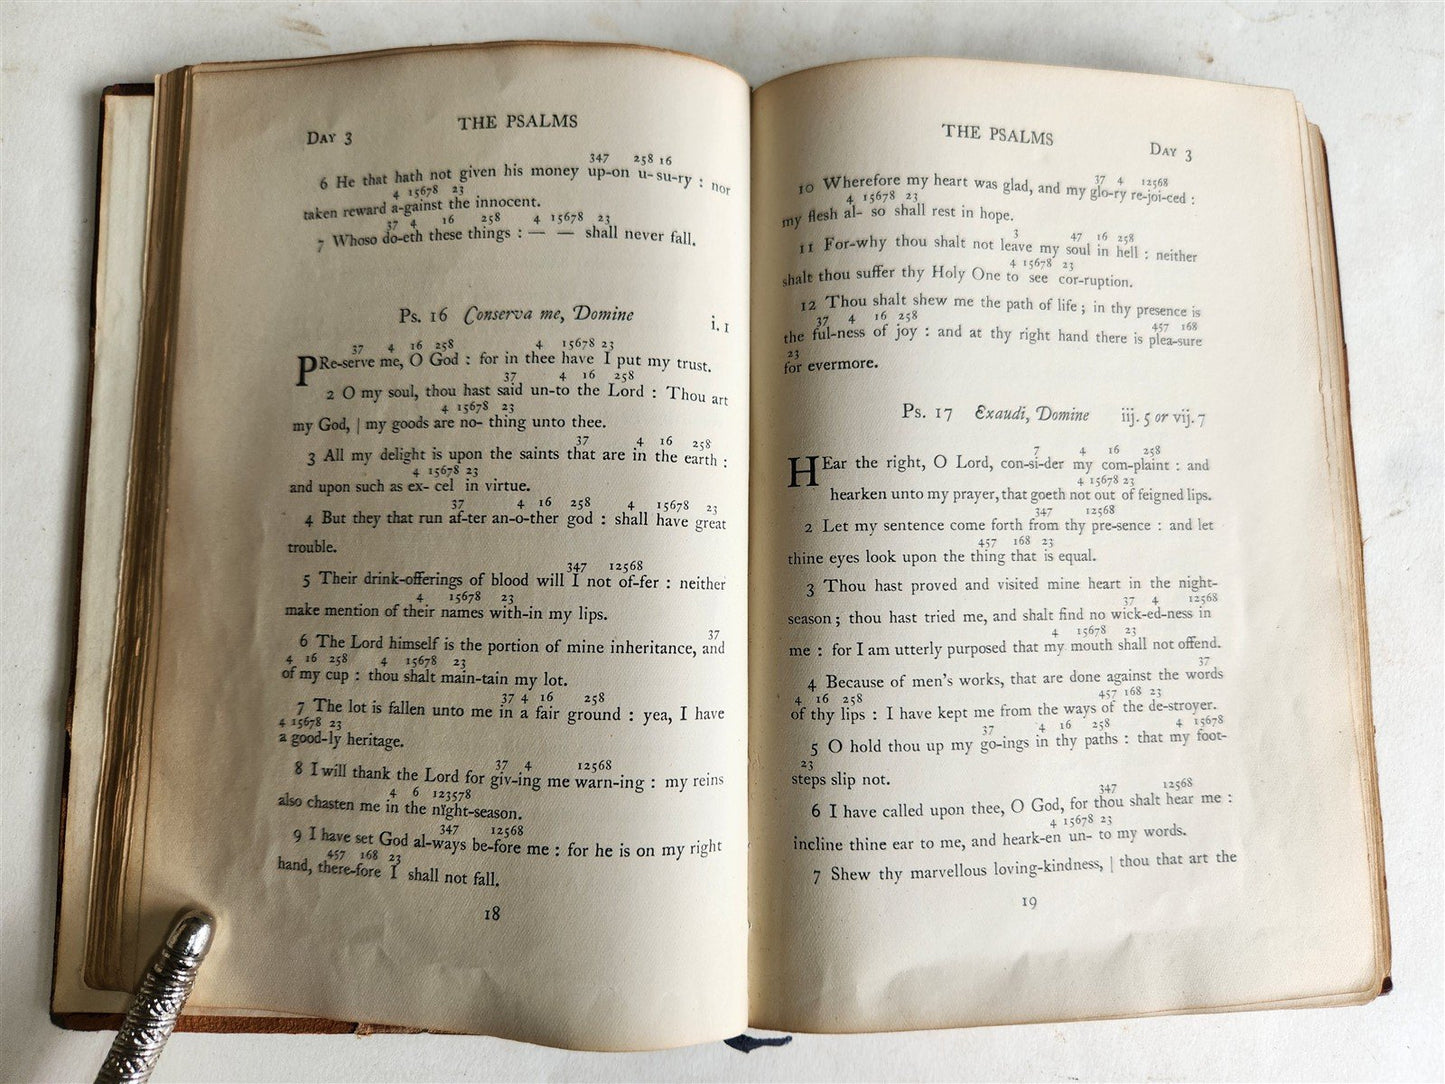 THE PSALMS
DAY 3
347 258 16
6 He that hath not given his money up-on u-su-ry : nor
4 15678 23
taken reward a-gainst the innocent.
37 4 16 258 4 15678 23
7 Whoso do-eth these things : — — shall never fall.
Ps. 16 Conserva me, Domine i. 1
37 4 16 258 4 15678 23
PRe-serve me, O God : for in thee have I put my trust.
37 4 16 258
2 O my soul, thou hast said un-to the Lord : Thou art
4 15678 23
my God, | my goods are no- thing unto thee.
37 4 16 258
3 All my delight is upon the saints that are in the earth :
4 15678 23
and upon such as ex- cel in virtue.
37 4 16 258 4 15678 23
4 But they that run af-ter an-o-ther god : shall have great
trouble.
347 12568
5 Their drink-offerings of blood will I not of-fer : neither
4 15678 23
make mention of their names with-in my lips.
37
6 The Lord himself is the portion of mine inheritance, and
4 16 258 4 15678 23
of my cup : thou shalt main-tain my lot.
37 4 16 258
7 The lot is fallen unto me in a fair ground : yea, I have
4 15678 23
a good-ly heritage.
37 4 12568
8 I will thank the Lord for giv-ing me warn-ing : my reins
4 6 123578
also chasten me in the night-season.
347 12568
9 I have set God al-ways be-fore me : for he is on my right
457 168 23
hand, there-fore I shall not fall.
18
THE PSALMS
DAY 3
37 4 12568
10 Wherefore my heart was glad, and my glo-ry re-joi-ced :
4 15678 23
my flesh al- so shall rest in hope.
3 47 16 258
11 For-why thou shalt not leave my soul in hell : neither
4 15678 23
shalt thou suffer thy Holy One to see cor-ruption.
12 Thou shalt shew me the path of life ; in thy presence is
37 4 16 258 457 168
the ful-ness of joy : and at thy right hand there is plea-sure
23
for evermore.
Ps. 17 Exaudi, Domine iij. 5 or vij. 7
7 4 16 258
HEar the right, O Lord, con-si-der my com-plaint : and
4 15678 23
hearken unto my prayer, that goeth not out of feigned lips.
347 12568
2 Let my sentence come forth from thy pre-sence : and let
457 168 23
thine eyes look upon the thing that is equal.
3 Thou hast proved and visited mine heart in the night-
37 4 12568
season ; thou hast tried me, and shalt find no wick-ed-ness in
4 15678 23
me : for I am utterly purposed that my mouth shall not offend.
37
4 Because of men's works, that are done against the words
4 16 258 457 168 23
of thy lips : I have kept me from the ways of the de-stroyer.
37 4 16 258 4 15678
5 O hold thou up my go-ings in thy paths : that my foot-
23
steps slip not.
347 12568
6 I have called upon thee, O God, for thou shalt hear me :
4 15678 23
incline thine ear to me, and heark-en un- to my words.
7 Shew thy marvellous loving-kindness, | thou that art the
19